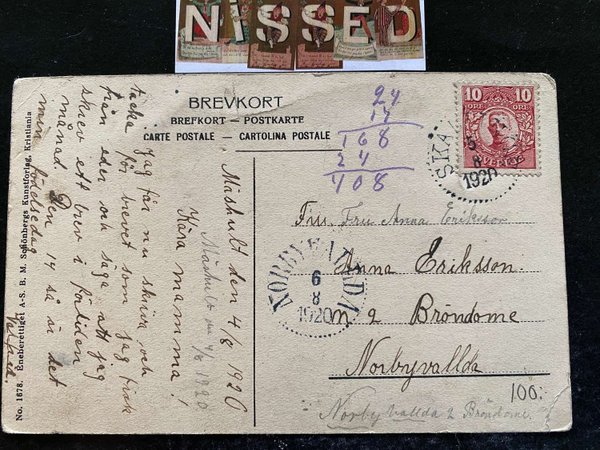 NISSED
BREVKORT
BREFKORT — POSTKARTE
CARTE POSTALE — CARTOLINA POSTALE
24
17
168
24
408
10 10
ÖRE ÖRE
SVERIGE
SKÅ
5
8
1920
Måshult den 4/8 1920
Måshult den 4/8 1920
Kära mamma!
Jag får nu skriva och
tacka för brevet som jag fick
från eder och saga att jag
skrev ett brev i förliden
månad. Den 14 så är det
min födelsedag
Fru. Fru Anna Eriksson
Anna Eriksson.
m 2 Bröndome
Norbyvallda
NORBYVALLDA
6
8
1920
100:-
Norby Vallda 2 Bröndome
No. 1678. Eneberettiget A.-S. B. M. Schönbergs Kunstforlag, Kristiania